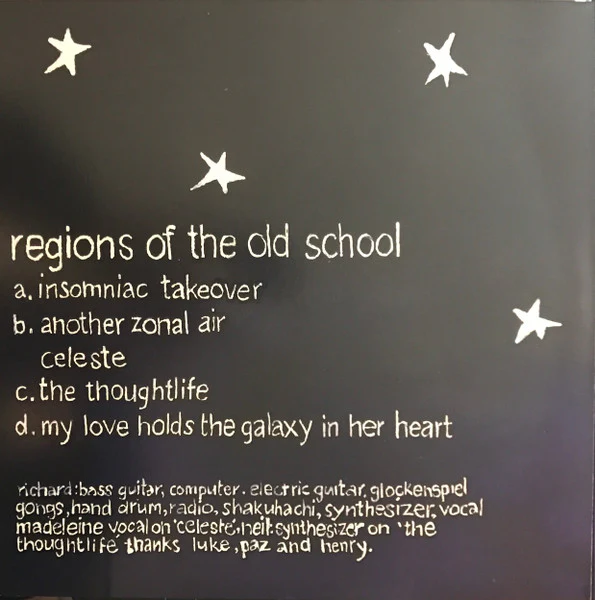 regions of the old school
a. insomniac takeover
b. another zonal air
celeste
c. the thoughtlife
d. my love holds the galaxy in her heart
richard: bass guitar, computer. electric guitar, glockenspiel
gongs, hand drum, radio, shakuhachi, synthesizer, vocal
madeleine vocal on 'celeste'. neil: synthesizer on 'the
thoughtlife' thanks luke, paz and henry.